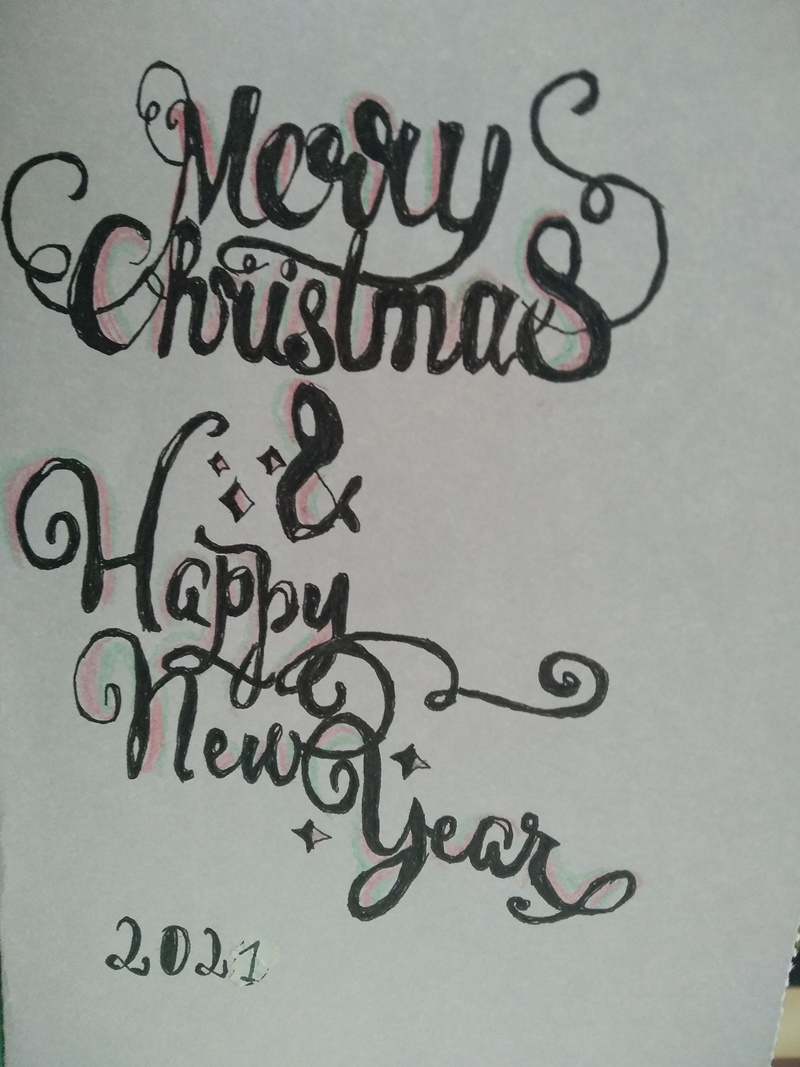 Merry
Christmas
&
Happy
New
Year
2021